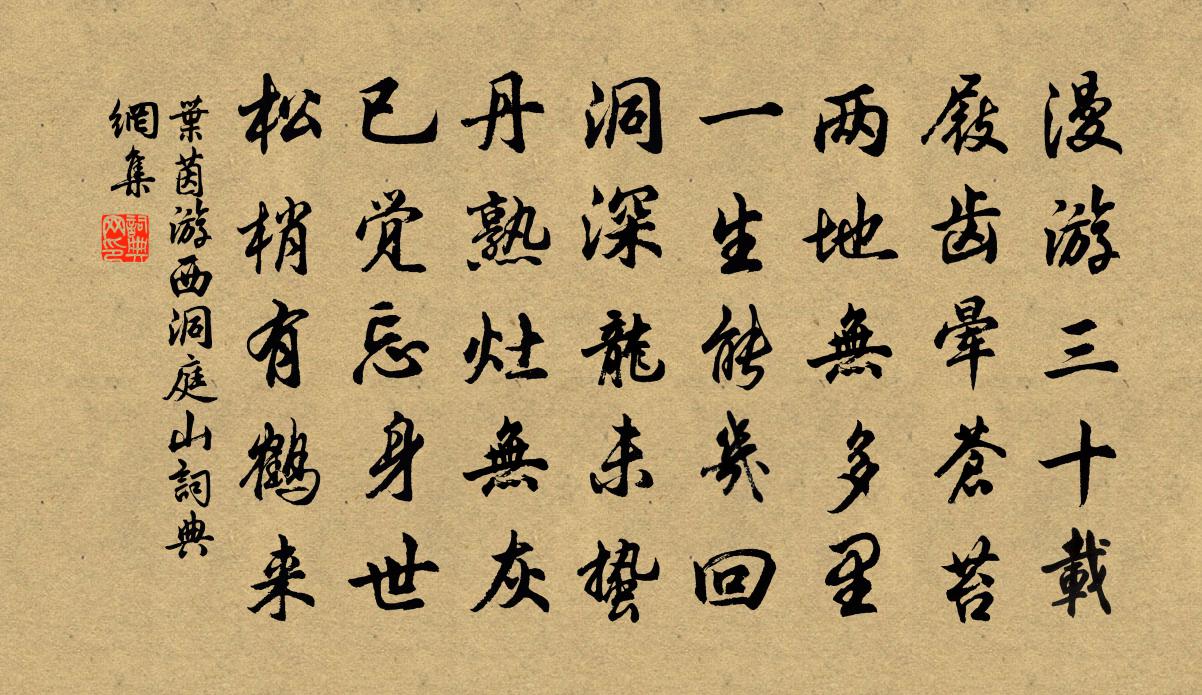 漫游三十載
屐齿晕苍苔
两地無多里
一生能幾回
洞深龍未蟄
丹熟灶無灰
已觉忘身世
松梢有鹤来
葉茵游西洞庭山詞典
網集
詞典
网印